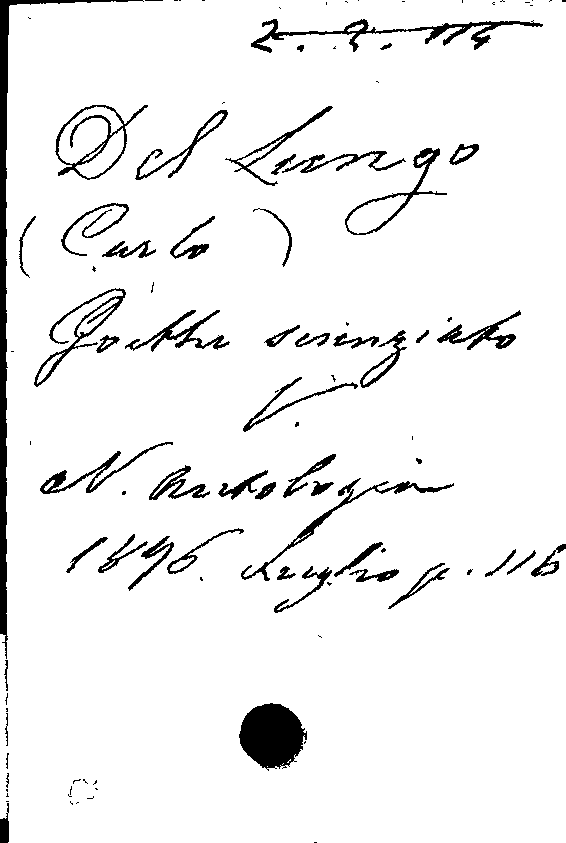 2. 2. 114
Del Lungo
(Carlo)
Goethe scienziato
V.
N. Antologia
1896. Luglio p. 116